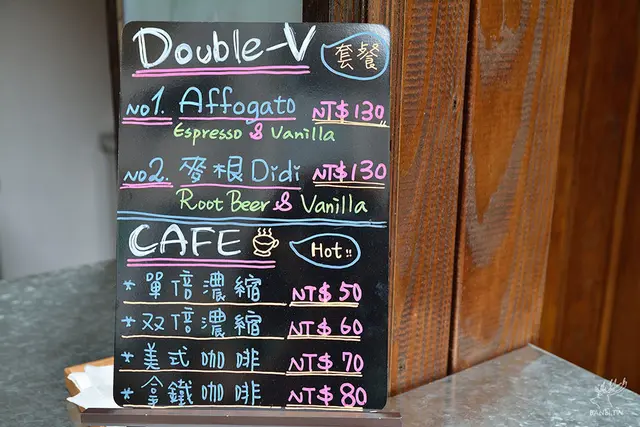 Double-V 套餐
No1. Affogato NT$130
Espresso & Vanilla
No2. 麥根Didi NT$130
Root Beer & Vanilla
CAFE Hot!!
* 單倍濃縮 NT$50
* 双倍濃縮 NT$60
* 美式咖啡 NT$70
* 拿鐵咖啡 NT$80